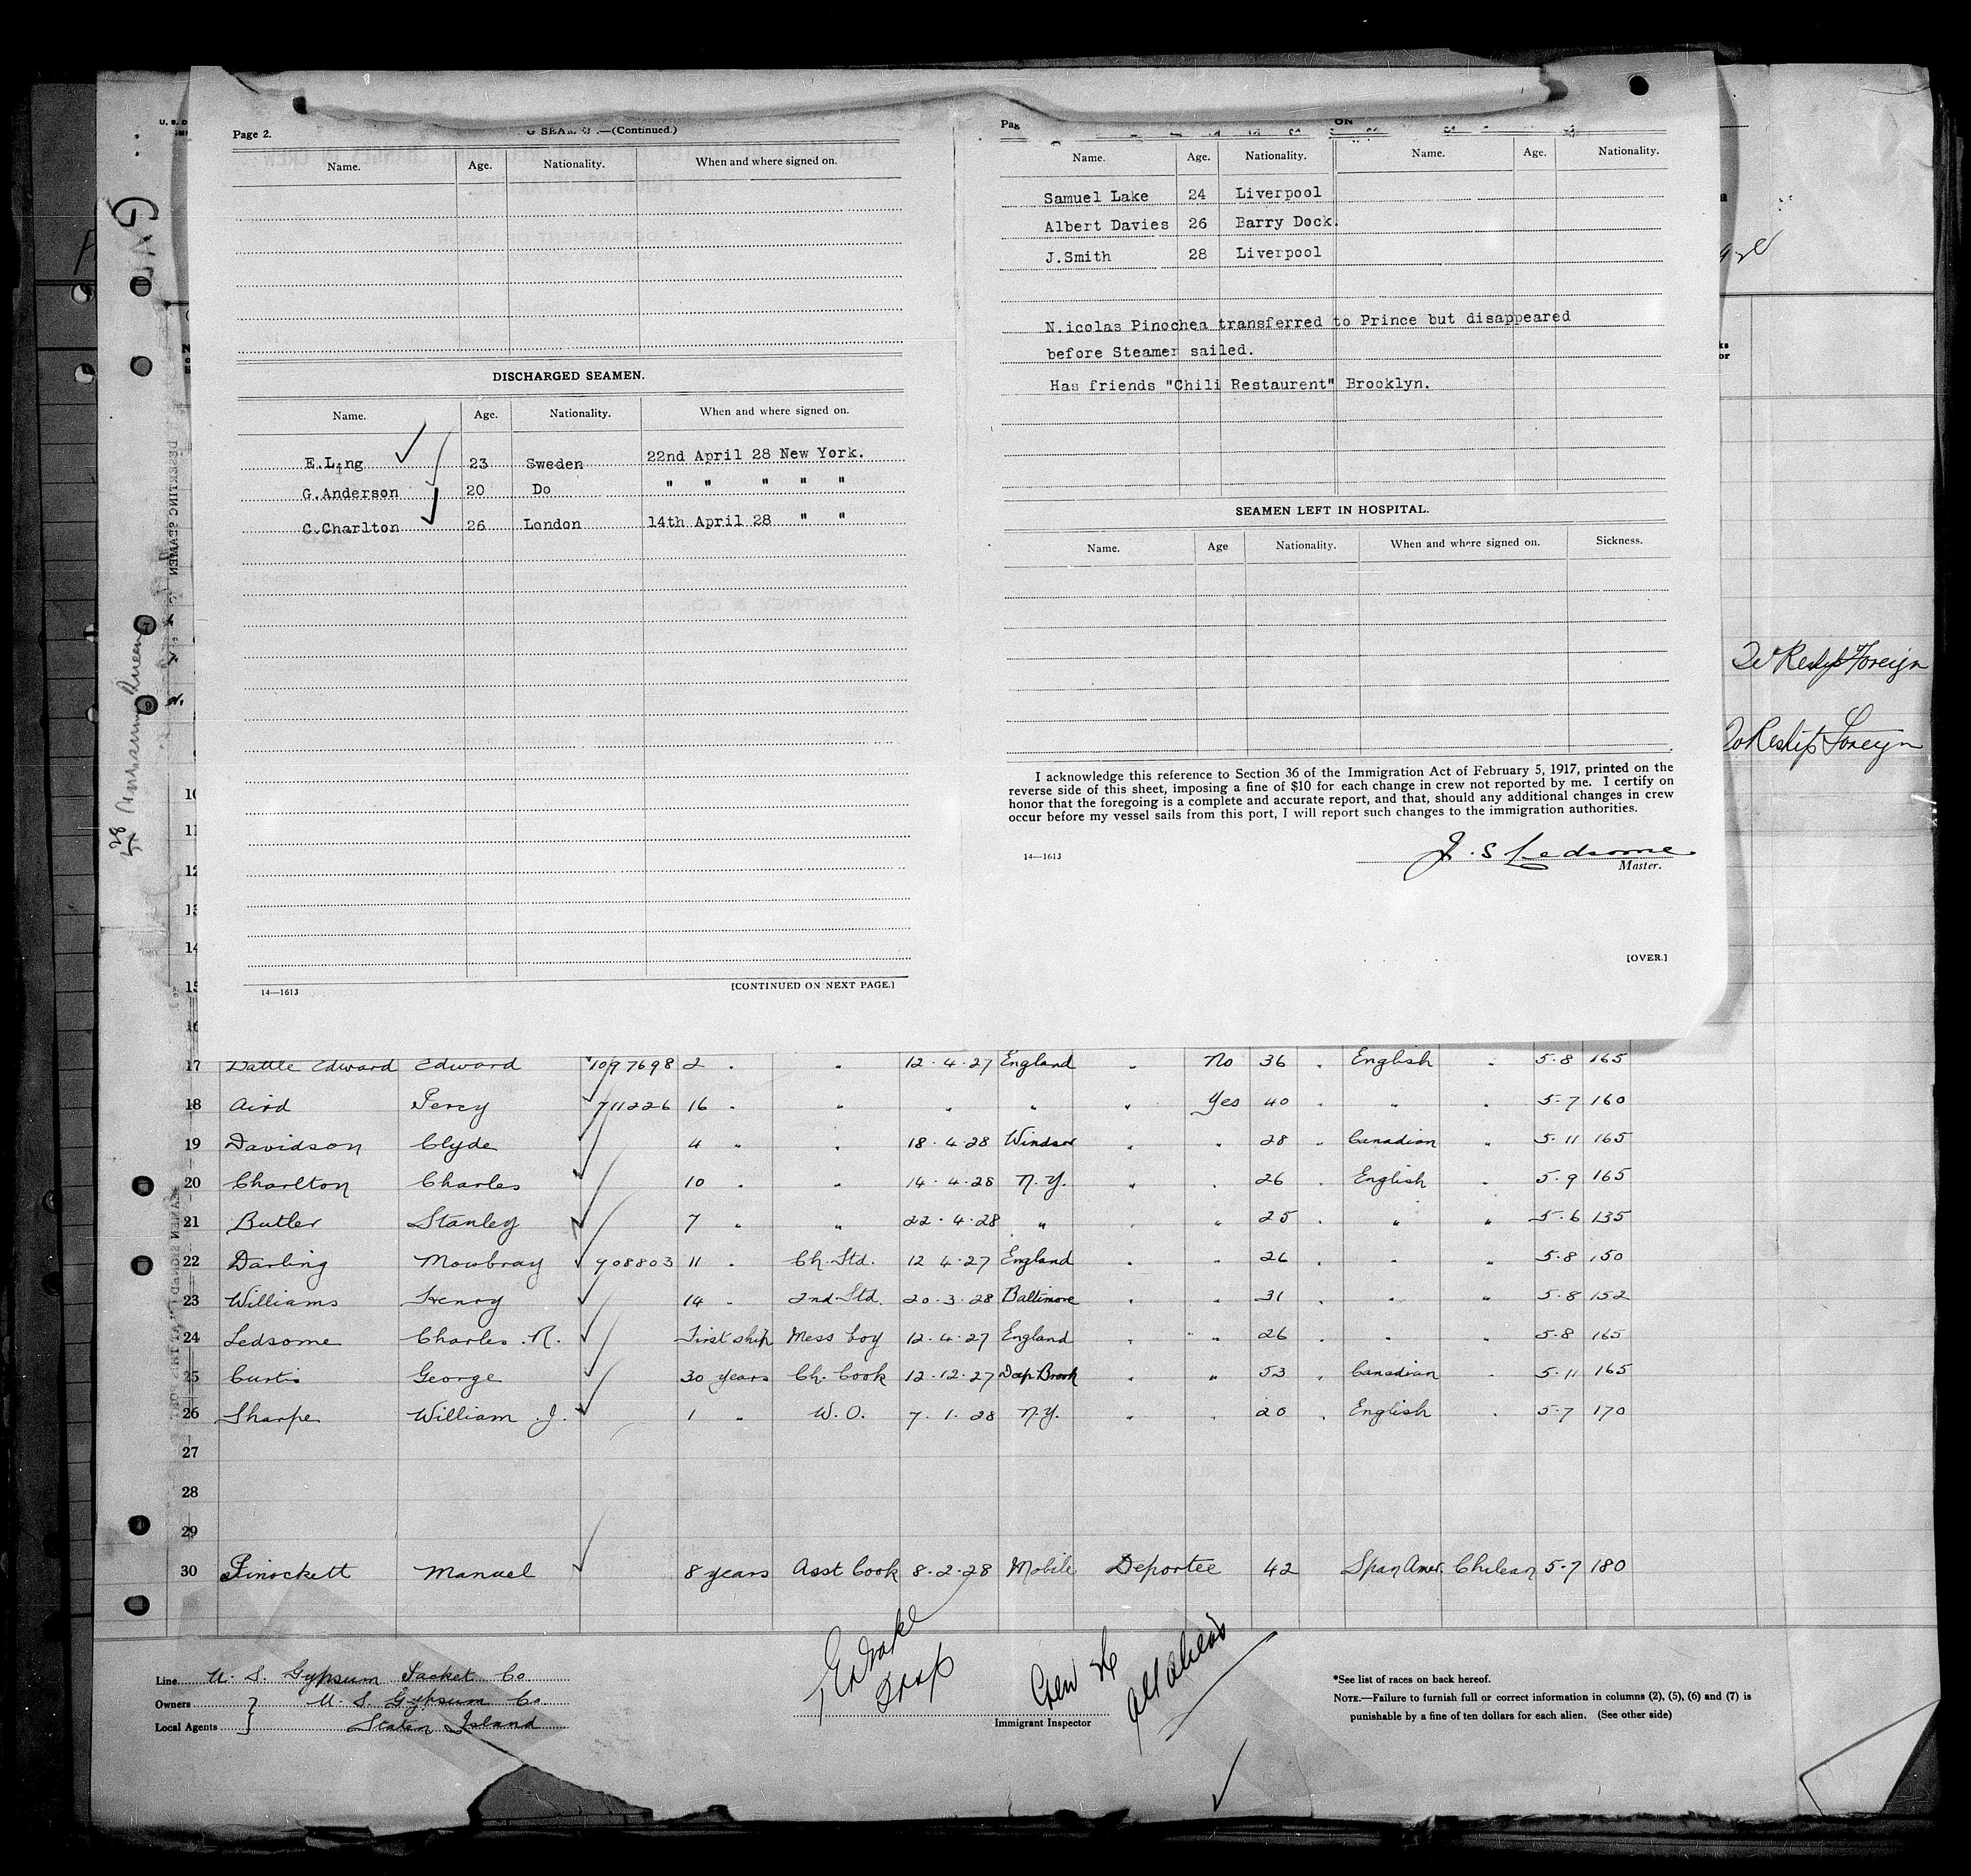 Page 2.
—(Continued.)
Name. Age. Nationality. When and where signed on.
DISCHARGED SEAMEN.
Name. Age. Nationality. When and where signed on.
E.Ling 23 Sweden 22nd April 28 New York.
G.Anderson 20 Do " " " " "
C.Charlton 26 London 14th April 28 " "
14—1613 [CONTINUED ON NEXT PAGE.]
Name. Age. Nationality. Name. Age. Nationality.
Samuel Lake 24 Liverpool
Albert Davies 26 Barry Dock.
J.Smith 28 Liverpool
N.icolas Pinochea transferred to Prince but disappeared
before Steamer sailed.
Has friends "Chili Restaurent" Brooklyn.
SEAMEN LEFT IN HOSPITAL.
Name. Age Nationality. When and where signed on. Sickness.
I acknowledge this reference to Section 36 of the Immigration Act of February 5, 1917, printed on the
reverse side of this sheet, imposing a fine of $10 for each change in crew not reported by me. I certify on
honor that the foregoing is a complete and accurate report, and that, should any additional changes in crew
occur before my vessel sails from this port, I will report such changes to the immigration authorities.
J. S Ledsome
14—1613 Master.
[OVER.]
Reship Foreign
To Reship Foreign
10
11
12
13
14
15
16
17 Dattle Edward Edward 1097698 2 " " 12.4.27 England " No 36 " English " 5.8 165
18 Aird Percy 711226 16 " " " " " Yes 40 " " " 5.7 160
19 Davidson Clyde 4 " " 18.4.28 Windsor " " 28 " Canadian " 5.11 165
20 Charlton Charles 10 " " 14.4.28 N.Y. " " 26 " English " 5.9 165
21 Butler Stanley 7 " " 22.4.28 " " " 25 " " " 5.6 135
22 Darling Mowbray 908803 11 " Ch. Std. 12 4.27 England " " 26 " " " 5.8 150
23 Williams Henry 14 " 2nd Std. 20.3.28 Baltimore " " 31 " " " 5.8 152
24 Ledsome Charles R. First ship Mess boy 12.4.27 England " " 26 " " " 5.8 165
25 Curtis George 30 years Ch. Cook 12.12.27 Deep Brook " " 53 " Canadian " 5.11 165
26 Sharpe William J. 1 " W.O. 7.1.28 N.Y. " " 20 " English " 5.7 170
27
28
29
30 Pinockett Manuel 8 years Asst Cook 8.2.28 Mobile Deportee 42 Span Amer. Chilean 5.7 180
Line U. S. Gypsum Packet Co.
Owners U. S. Gypsum Co
Local Agents Staten Island
Immigrant Inspector
*See list of races on back hereof.
NOTE.—Failure to furnish full or correct information in columns (2), (5), (6) and (7) is
punishable by a fine of ten dollars for each alien. (See other side)